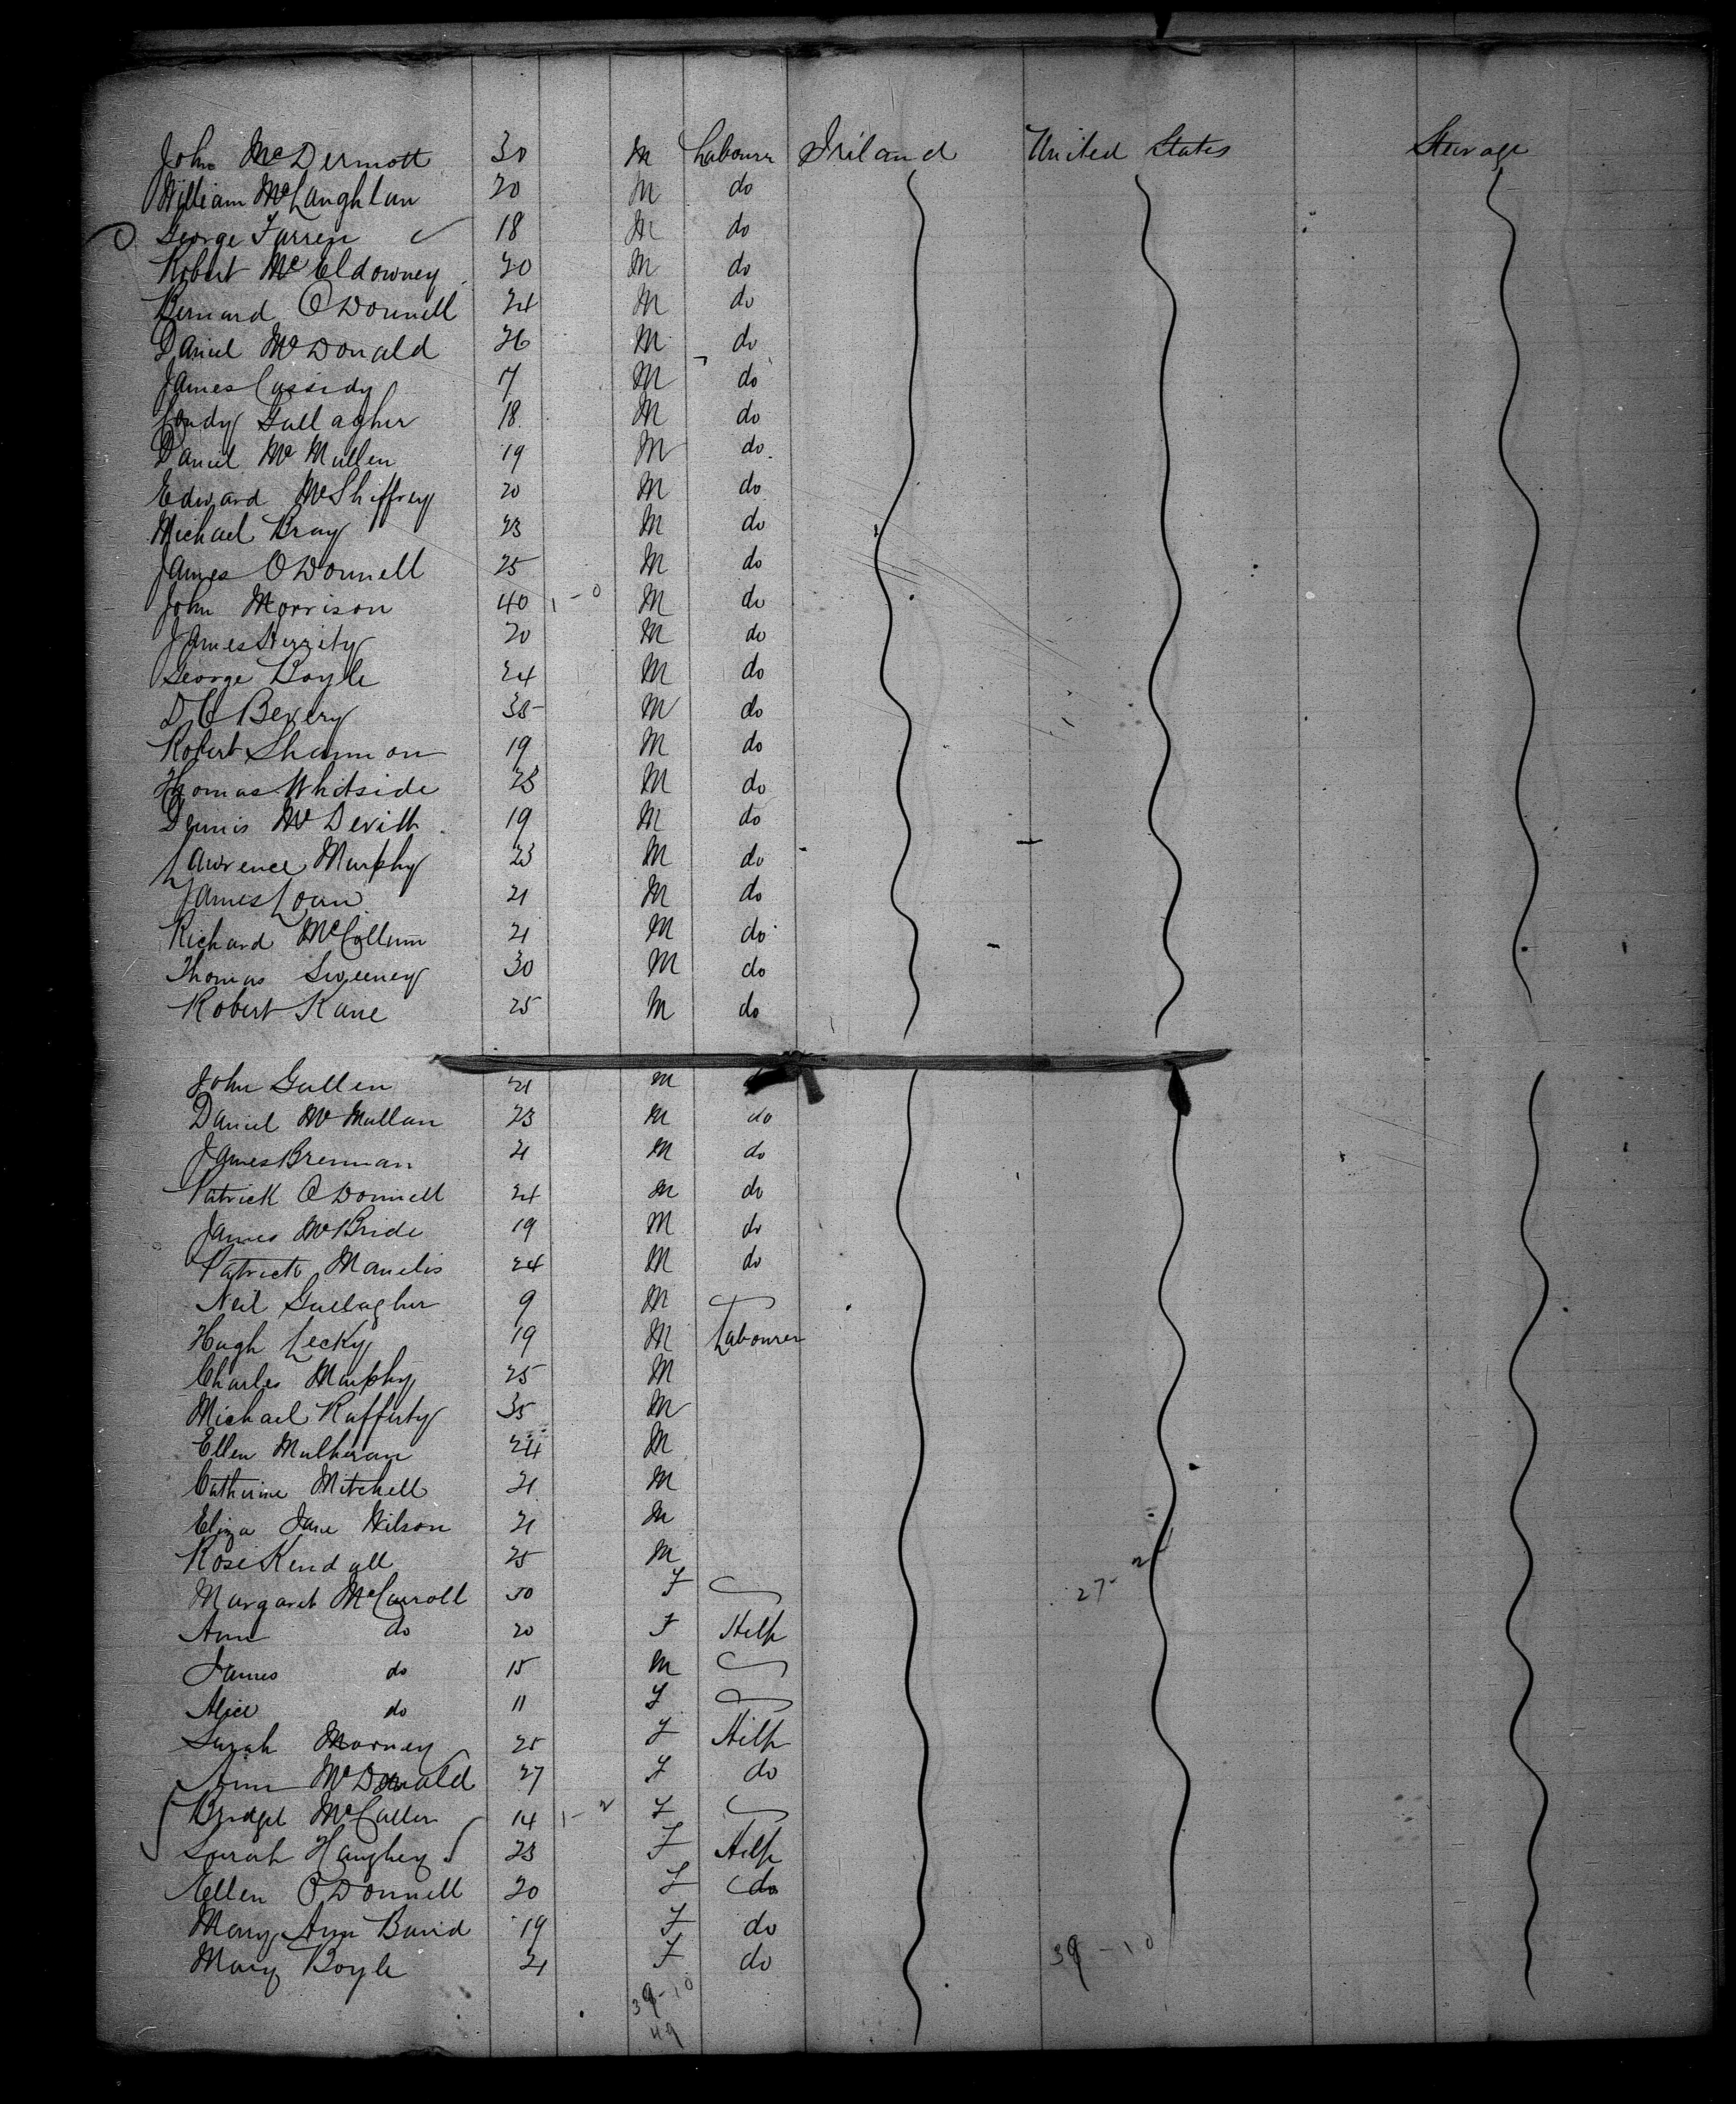 John McDermott 30 M Labourer Ireland United States Steerage
William McLaughlan 20 M do
George Farren 18 M do
Robert McEldowney 20 M do
Bernard O'Donnell 24 M do
Daniel McDonald 26 M do
James Cassidy 17 M do
Condy Gallagher 18 M do
Daniel McMullen 19 M do
Edward McSheffrey 20 M do
Michael Bray 23 M do
James O'Donnell 25 M do
John Morrison 40 1-0 M do
James Herrity 20 M do
George Boyle 24 M do
D C Bevery 35 M do
Robert Shannon 19 M do
Thomas Whitside 23 M do
Dennis McDevitt 19 M do
Lawrence Murphy 23 M do
James Loan 21 M do
Richard McCollum 21 M do
Thomas Sweeney 30 M do
Robert Kane 25 M do
John Gullen 21 M
Daniel McMullan 23 M do
James Brennan 21 M do
Patrick O'Donnell 24 M do
James McBride 19 M do
Patrick Manelis 24 M do
Neil Gallagher 9 M
Hugh Lecky 19 M Labourer
Charles Murphy 25 M
Michael Rafferty 35 M
Ellen Mulheran 24 M
Catherine Mitchell 21 M
Eliza Jane Wilson 21 M
Rose Kendall 25 M
Margaret McCarroll 50 F 27-2
Ann do 20 F Help
James do 15 M
Alice do 11 F
Sarah Morney 25 F Help
Ann McDonald 27 F do
Bridget McCallen 14 1-2 F
Sarah Haughey 23 F Help
Ellen O'Donnell 20 F do
Mary Ann Baird 19 F do
Mary Boyle 21 F do 39-10
39-10
49